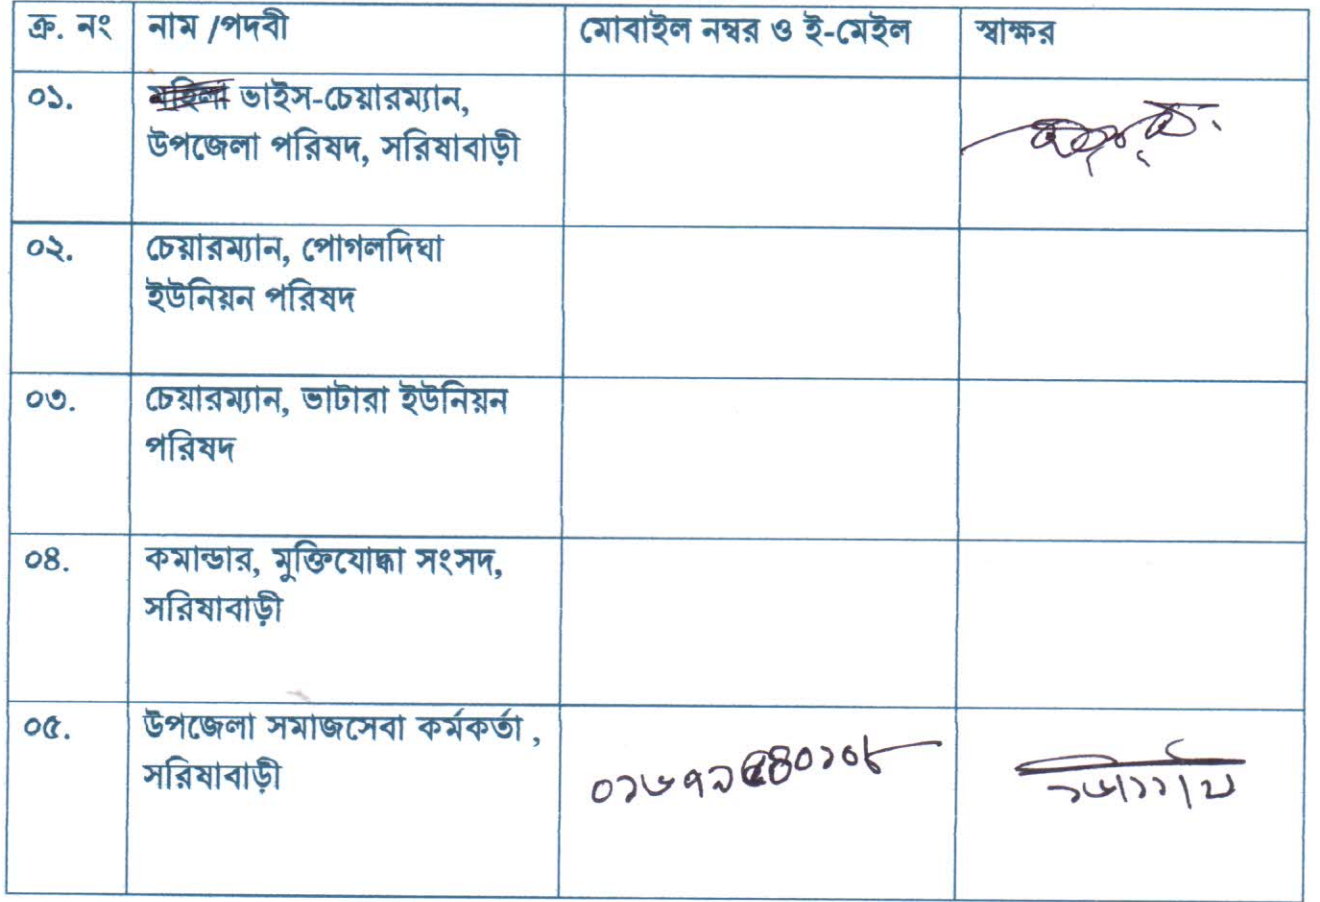 ক্র. নং নাম /পদবী মোবাইল নম্বর ও ই-মেইল স্বাক্ষর
০১. মহিলা ভাইস-চেয়ারম্যান,
উপজেলা পরিষদ, সরিষাবাড়ী
০২. চেয়ারম্যান, পোগলদিঘা
ইউনিয়ন পরিষদ
০৩. চেয়ারম্যান, ভাটারা ইউনিয়ন
পরিষদ
০৪. কমান্ডার, মুক্তিযোদ্ধা সংসদ,
সরিষাবাড়ী
০৫. উপজেলা সমাজসেবা কর্মকর্তা ,
সরিষাবাড়ী